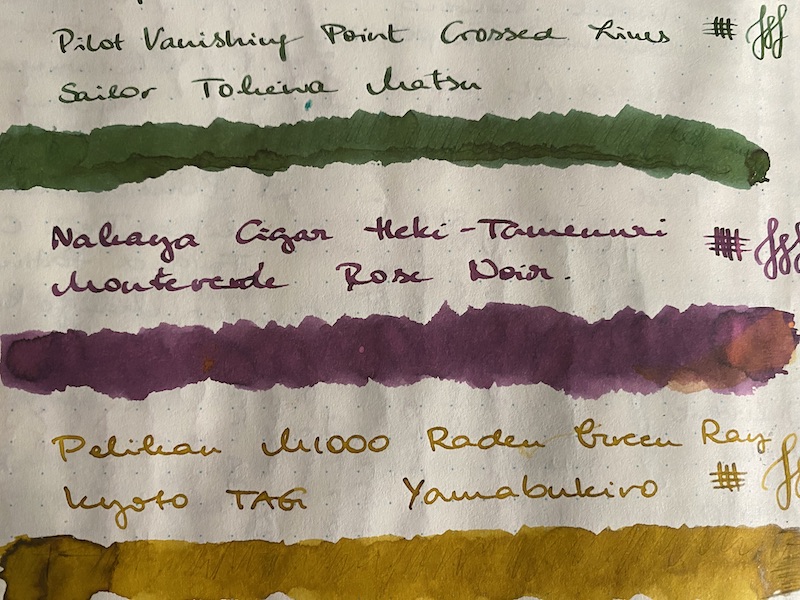 Pilot Vanishing Point Crossed Lines
Sailor Tokiwa Matsu
Nakaya Cigar Heki-Tamenuri
Monteverde Rose Noir.
Pelikan M1000 Raden Green Ray
Kyoto TAG Yamabukiro